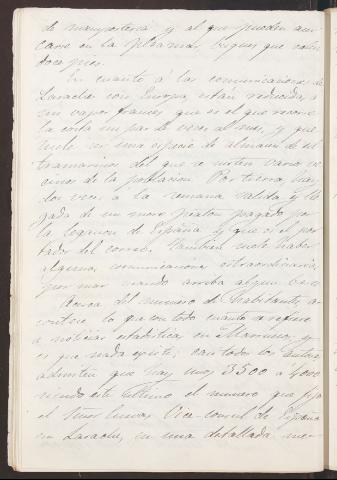 de mampostería y al que pueden
carse en la pleamar, buques que calen
doce pies.
En cuanto á las comunicaciones de
Larache con Europa, están reducidas á
un vapor francés que es el que recorre
la costa un par de veces al mes, y que
suele ser una especie de almacen de ul
tramarinos del que se surten varios ve
cinos de la poblacion. Por tierra, hay
dos veces á la semana salida y lle
gada de un moro peaton pagado por
la legacion de España y que es el por
tador del correo. Tambien suele haber
alguna, comunicacion extraordinaria,
por mar cuando arriba algun
Acerca del número de habitantes, a-
contece lo que con todo cuanto se refiere
á noticias estadísticas en Marruecos, y
es que nada existe; casi todos los autores
admiten que hay unos 3500 á 4000
siendo este último el número que fija
el Señor Cuevas Vice-consul de España
en Larache, en una detallada me-